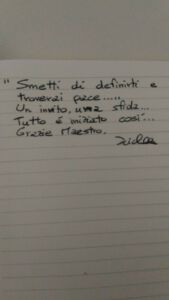 " Smetti di definirti e
troverai pace.....
Un invito, una sfida...
Tutto é iniziato così...
Grazie Maestro.